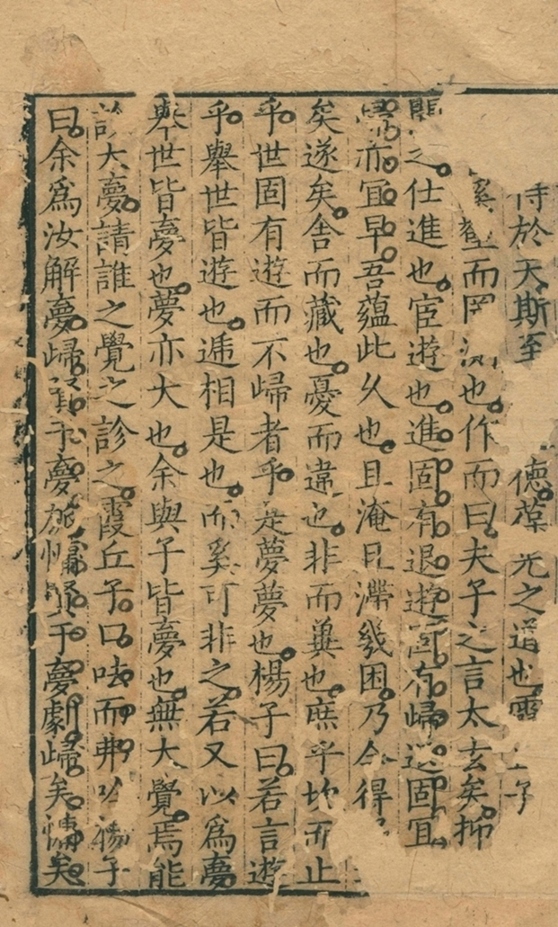 於天斯至德葆光之道也霞
而罔測也作而曰夫子之言太玄矣抑
之仕進也宦遊也進固有退遊固有歸退固宜
亦宜早吾蘊此久也且淹且滯幾困乃今得
矣遂矣舍而藏也憂而違也非而糞也庶乎坎而止
乎世固有遊而不歸者乎是夢夢也楊子曰若言遊
乎舉世皆遊也遞相是也而奚可非之若又以爲夢
舉世皆夢也夢亦大也余與子皆夢也無大覺焉能
大夢請誰之覺之診之霞丘子口呿而弗吟楊子
曰余爲汝解夢歸于夢于夢劇歸矣